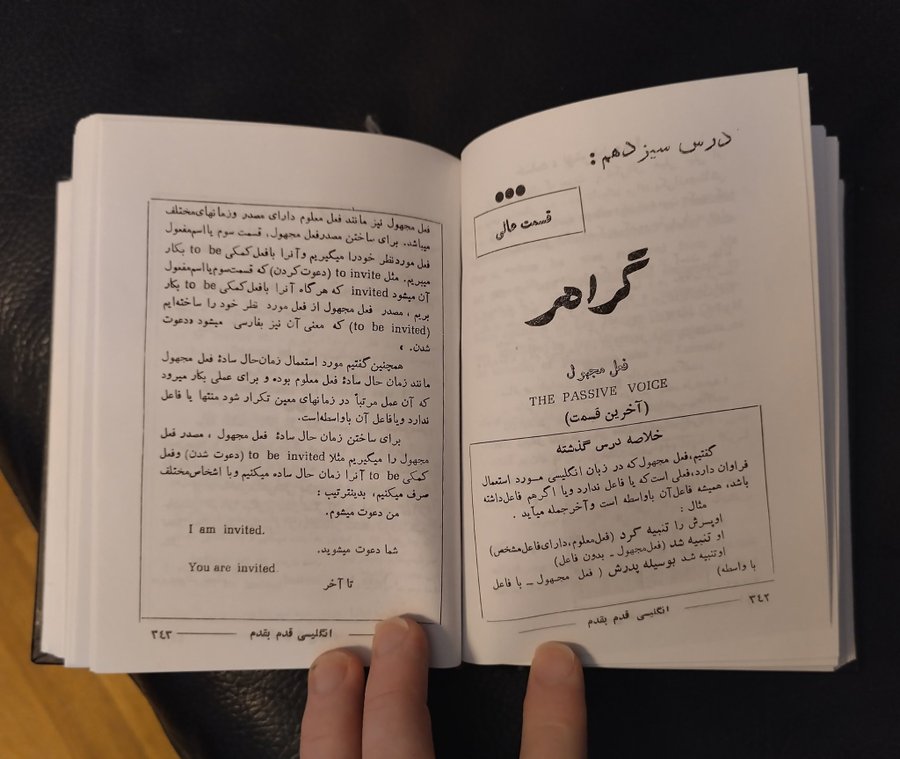 درس سیزدهم :
قسمت حالی
گرامر
فعل مجهول
THE PASSIVE VOICE
(آخرین قسمت)
خلاصه درس گذشته
گفتیم، فعل مجهول که در زبان انگلیسی مورد استعمال
فراوان دارد، فعلی است که یا فاعل ندارد ویا اگر هم فاعل داشته
باشد، همیشه فاعل آن باواسطه است وآخر جمله میآید .
مثال :
اوپسرش را تنبیه کرد (فعل معلوم، دارای فاعل مشخص)
او تنبیه شد (فعل مجهول ــ بدون فاعل)
اوتنبیه شد بوسیله پدرش ( فعل مجهول ــ با فاعل
با واسطه)
انگلیسی قدم بقدم ۳۴۲
فعل مجهول نیز مانند فعل معلوم دارای مصدر وزمانهای مختلف
میباشد. برای ساختن مصدر فعل مجهول، قسمت سوم یا اسم مفعول
فعل مورد نظر خود را میگیریم و آنرا با فعل کمکی to be بکار
میبریم. مثل to invite (دعوت کردن) که قسمت سوم یا اسم مفعول
آن میشود invited که هر گاه آنرا با فعل کمکی to be بکار
بریم ، مصدر فعل مجهول از فعل مورد نظر خود را ساخته‌ایم
(to be invited) که معنی آن نیز بفارسی میشود «دعوت
شدن. »
همچنین گفتیم مورد استعمال زمان حال سادهٔ فعل مجهول
مانند زمان حال سادهٔ فعل معلوم بوده و برای عملی بکار میرود
که آن عمل مرتباً در زمانهای معین تکرار شود منتها یا فاعل
ندارد ویا فاعل آن باواسطه‌است.
برای ساختن زمان حال سادهٔ فعل مجهول ، مصدر فعل
مجهول را میگیریم مثلا to be invited (دعوت شدن) وفعل
کمکی to be آنرا زمان حال ساده میکنیم و با اشخاص مختلف
صرف میکنیم، بدینترتیب :
من دعوت میشوم.
I am invited.
شما دعوت میشوید.
You are invited
تا آخر
انگلیسی قدم بقدم ۳۴۳